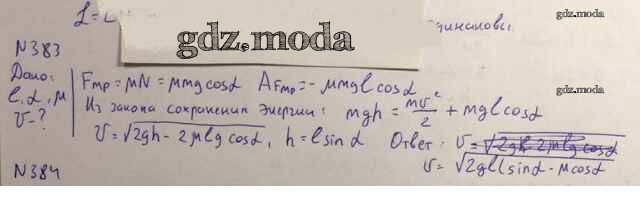 gdz.moda
gdz.moda
N383
Дано:
l, α, μ
v-?
Fтр = μN = μmg cosα   AFтр = - μmgl cosα
Из закона сохранения энергии: mgh = mv²/2 + mgl cosα
v = √2gh - 2μlg cosα, h = l sinα   Ответ: v = √2gh - 2μlg cosα
v = √2gl(sinα - μcosα
N384
gdz.moda